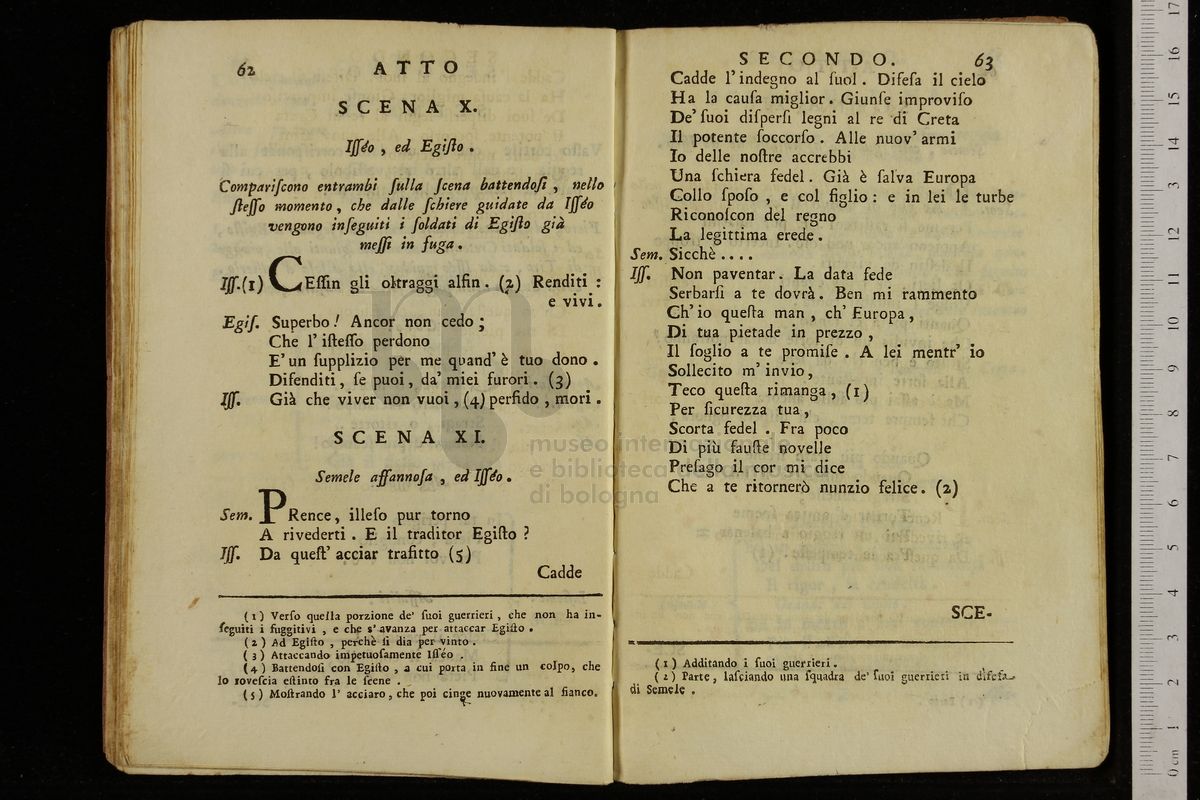 62 ATTO
SCENA X.
Iſſéo , ed Egiſto .
Compariſcono entrambi ſulla ſcena battendoſi , nello
ſteſſo momento , che dalle ſchiere guidate da Iſſéo
vengono inſeguiti i ſoldati di Egiſto già
meſſi in fuga .
Iſſ.(1) CEſſin gli oltraggi alfin . (2) Renditi :
e vivi .
Egiſ. Superbo ! Ancor non cedo ;
Che l' iſteſſo perdono
E' un ſupplizio per me quand' è tuo dono .
Difenditi , ſe puoi , da' miei furori . (3)
Iſſ. Già che viver non vuoi , (4) perfido , mori .
SCENA XI.
Semele affannoſa , ed Iſſéo .
Sem. PRence, illeſo pur torno
A rivederti . E il traditor Egiſto ?
Iſſ. Da queſt' acciar trafitto (5)
Cadde
(1) Verſo quella porzione de' ſuoi guerrieri , che non ha in-
ſeguiti i fuggitivi , e che s' avanza per attaccar Egiſto .
(2) Ad Egiſto , perchè ſi dia per vinto .
(3) Attaccando impetuoſamente Iſſéo .
(4) Battendoſi con Egiſto , a cui porta in fine un colpo, che
lo roveſcia eſtinto fra le ſcene .
(5) Moſtrando l' acciaro, che poi cinge nuovamente al fianco.
SECONDO. 63
Cadde l' indegno al ſuol . Difeſa il cielo
Ha la cauſa miglior . Giunſe improviſo
De' ſuoi diſperſi legni al re di Creta
Il potente ſoccorſo . Alle nuov' armi
Io delle noſtre accrebbi
Una ſchiera fedel . Già è ſalva Europa
Collo ſpoſo , e col figlio : e in lei le turbe
Riconoſcon del regno
La legittima erede .
Sem. Sicchè ....
Iſſ. Non paventar . La data fede
Serbarſi a te dovrà . Ben mi rammento
Ch' io queſta man , ch' Europa ,
Di tua pietade in prezzo ,
Il ſoglio a te promiſe . A lei mentr' io
Sollecito m' invio ,
Teco queſta rimanga , (1)
Per ſicurezza tua ,
Scorta fedel . Fra poco
Di più fauſte novelle
Preſago il cor mi dice
Che a te ritornerò nunzio felice . (2)
SCE-
(1) Additando i ſuoi guerrieri .
(2) Parte , laſciando una ſquadra de' ſuoi guerrieri in difeſa
di Semele .
museo internazionale
e biblioteca della musica
di bologna
0 cm 1 2 3 4 5 6 7 8 9 10 11 12 13 14 15 16 17